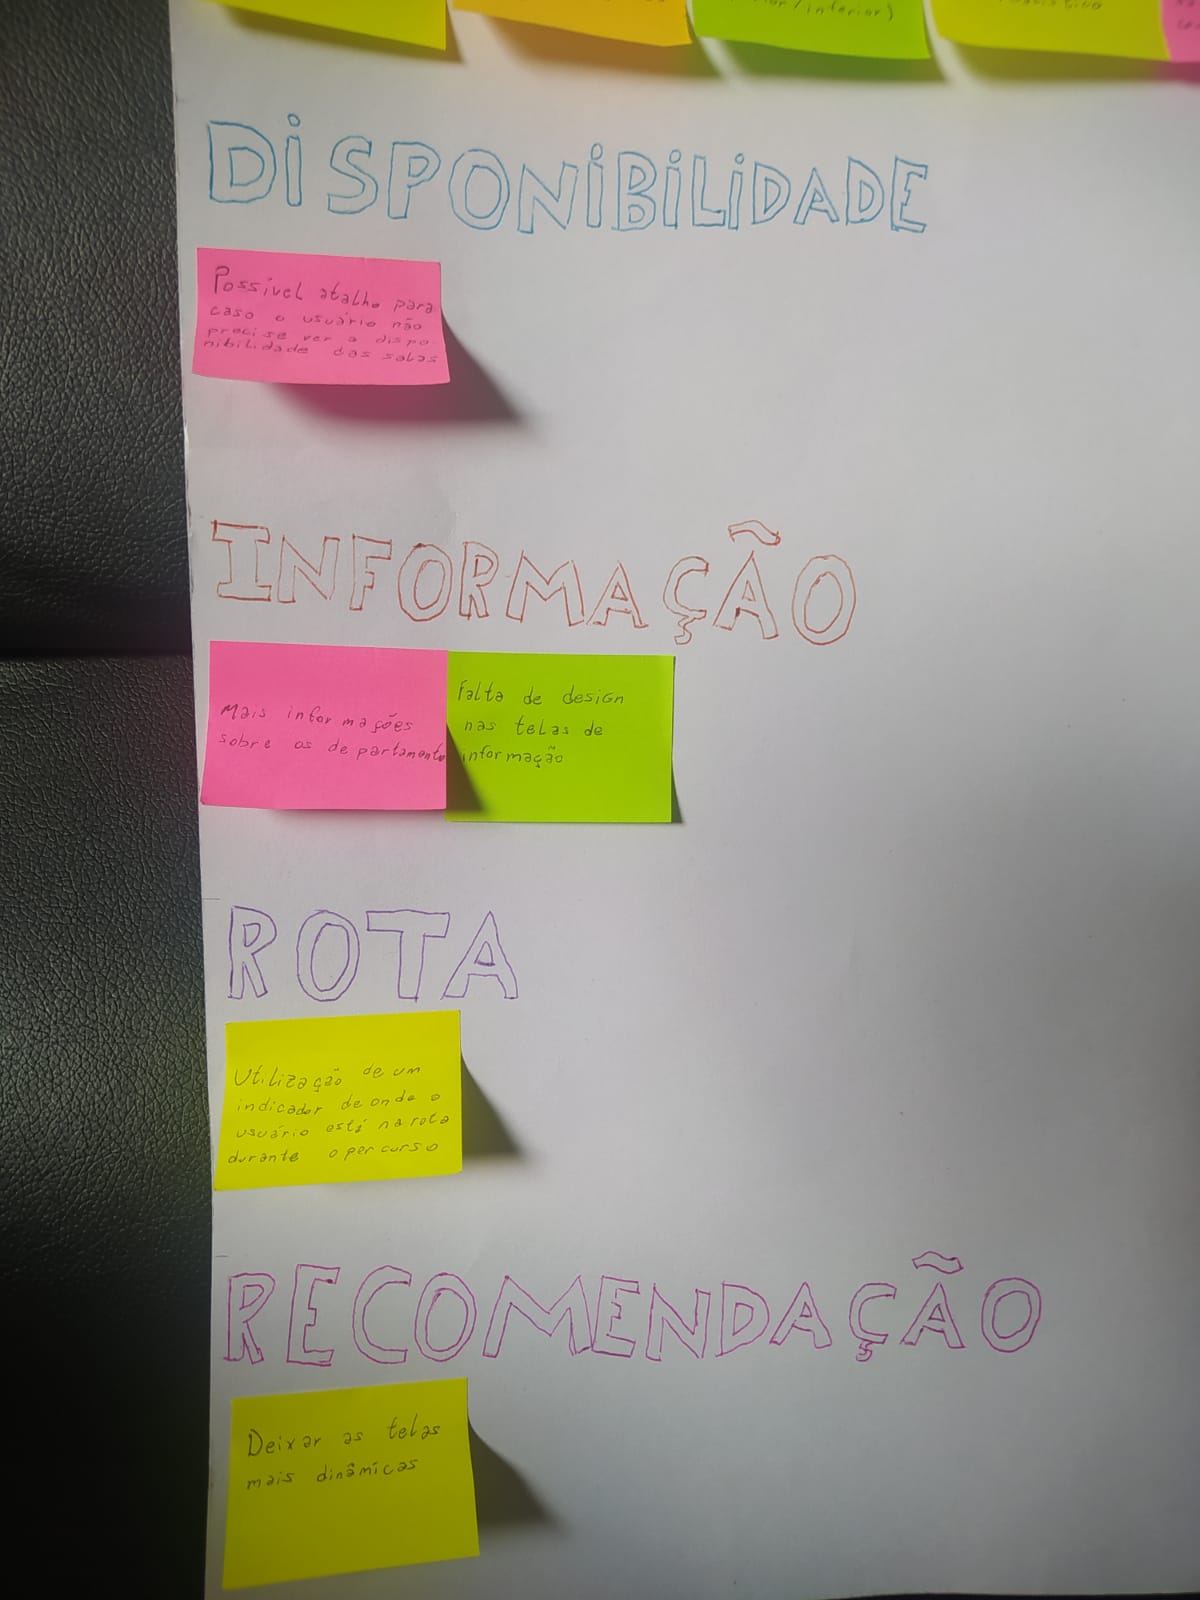 /inferior)
DISPONIBILIDADE
Possível atalho para
caso o usuário não
precise ver a dispo-
nibilidade das salas
INFORMAÇÃO
Mais informações
sobre os departamento
Falta de design
nas telas de
informação
ROTA
Utilização de um
indicador de onde o
usuário está na rota
durante o percurso
RECOMENDAÇÃO
Deixar as telas
mais dinâmicas